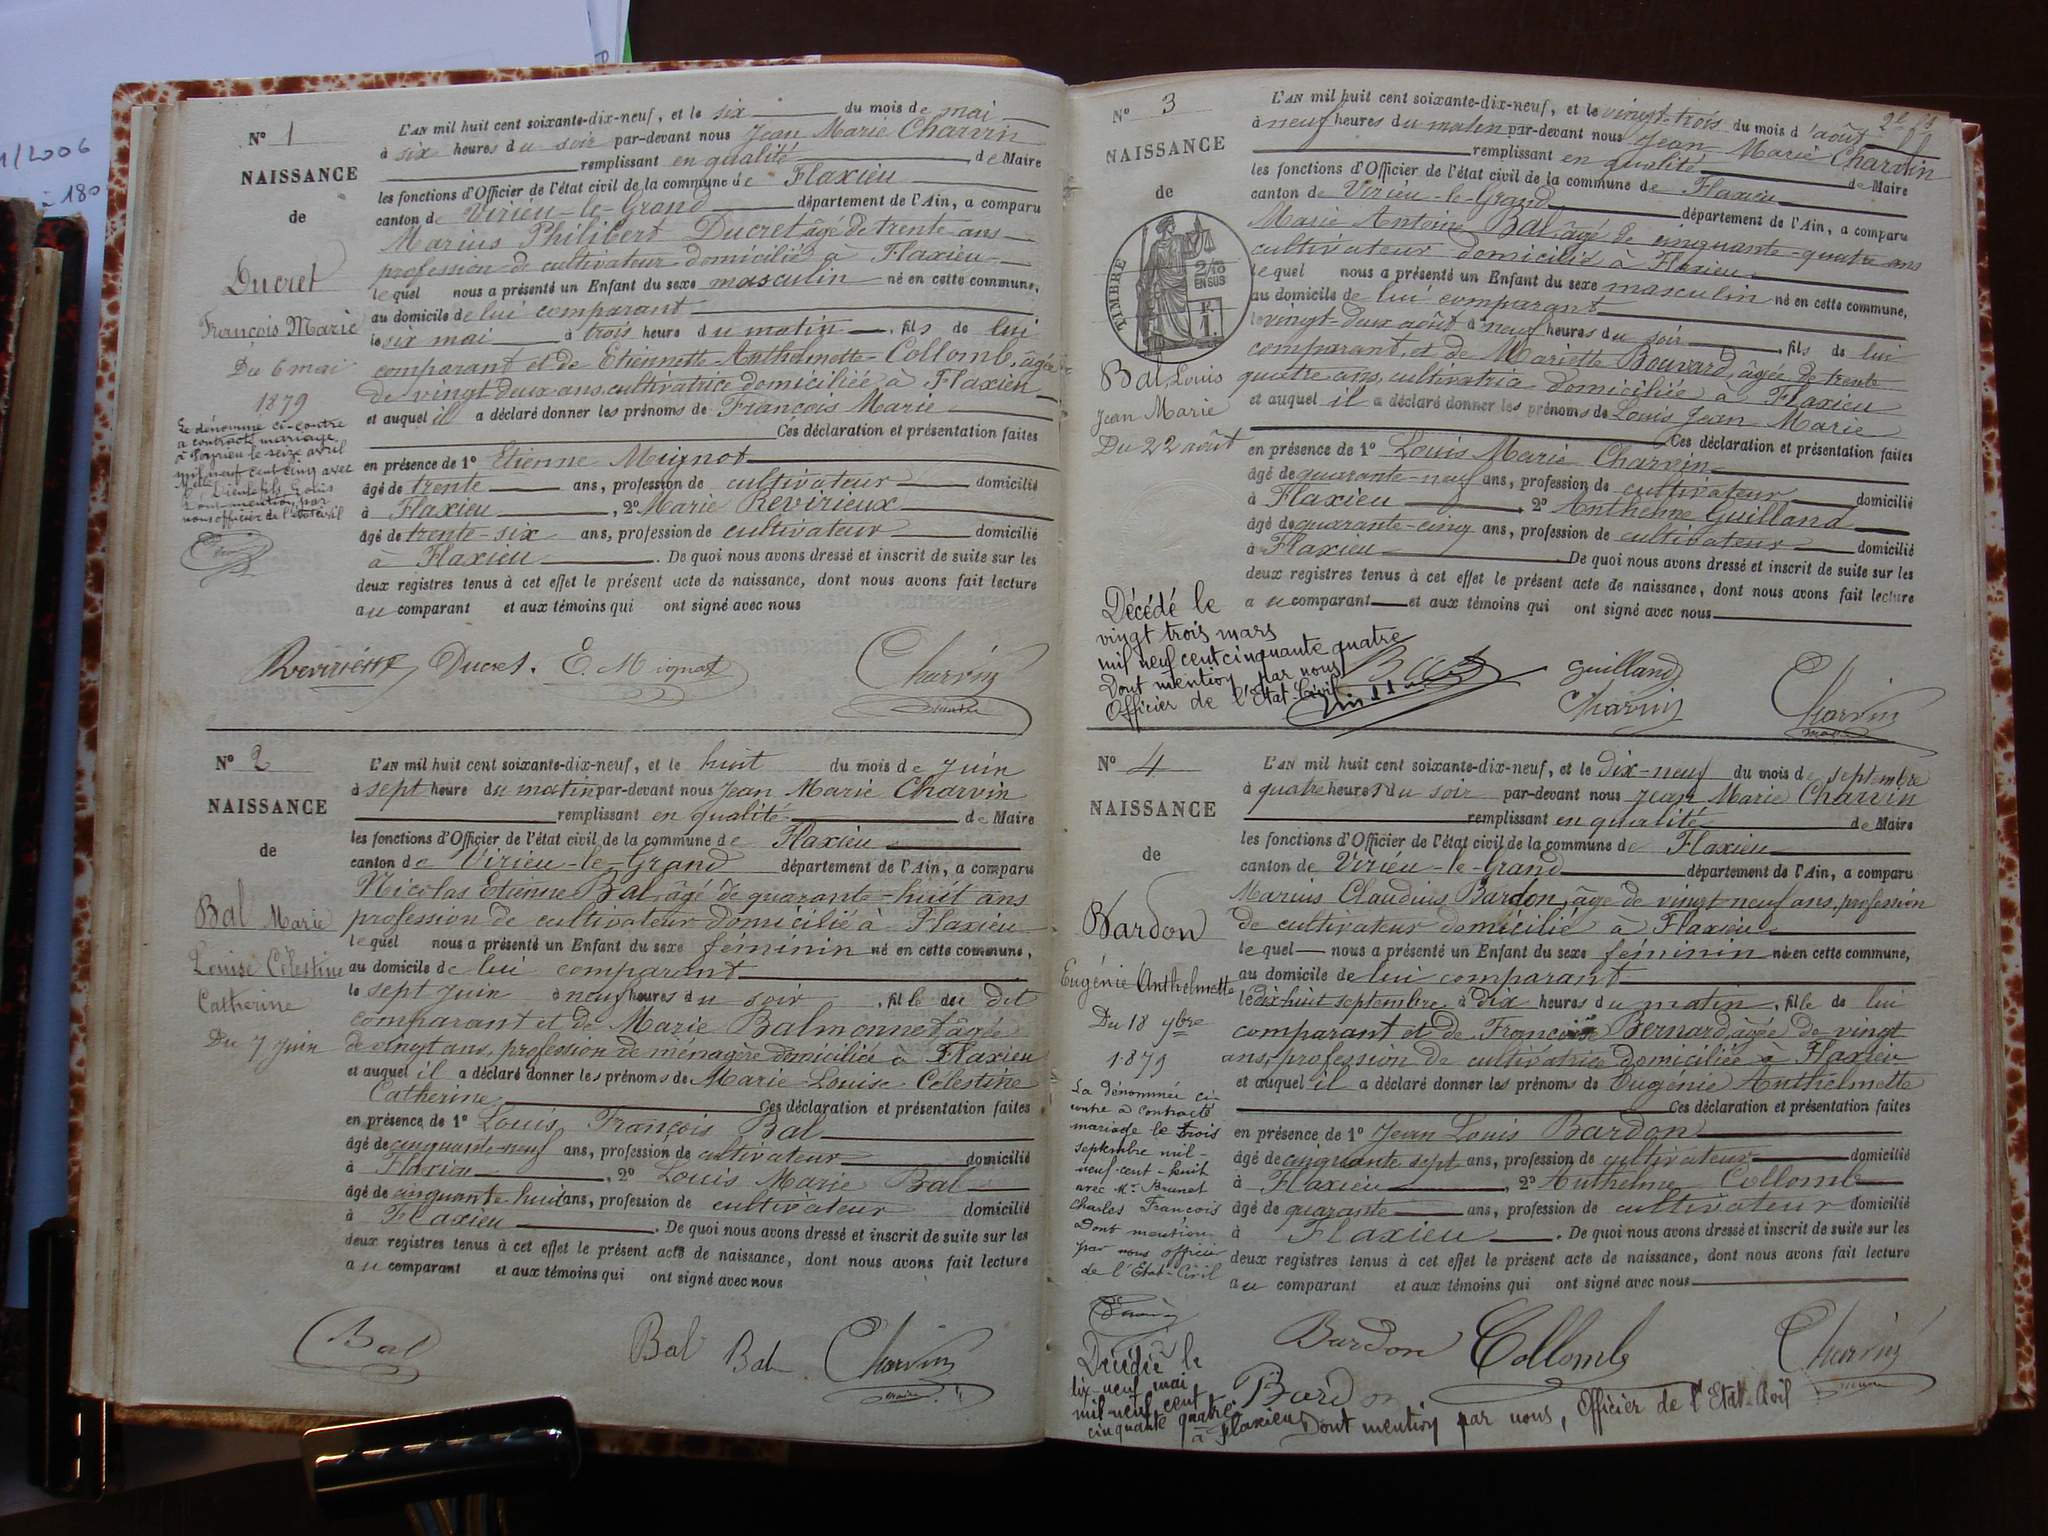 1/2006
à 180
N° 1
NAISSANCE
de
Ducret
François Marie
Du 6 mai
1879
Le dénommé ci-contre
a contracté mariage
à Peyrieu le seize avril
mil neuf cent cinq avec
Melle
Dont mention par
nous officier de l'état civil
L'AN mil huit cent soixante-dix-neuf, et le six du mois de mai
à six heures du soir par-devant nous Jean Marie Charvin
remplissant en qualité de Maire
les fonctions d'Officier de l'état civil de la commune de Flaxieu
canton de Virieu-le-Grand département de l'Ain, a comparu
Marius Philibert Ducret âgé de trente ans
profession de cultivateur domicilié à Flaxieu
lequel nous a présenté un Enfant du sexe masculin né en cette commune,
au domicile de lui comparant
le six mai à trois heure du matin, fils de lui
comparant et de Etiennette-Anthelmette-Collomb, âgée
de vingt deux ans, cultivatrice domiciliée à Flaxieu
et auquel il a déclaré donner les prénoms de François Marie
Ces déclaration et présentation faites
en présence de 1° Etienne Mignot
âgé de trente ans, profession de cultivateur domicilié
à Flaxieu, 2° Marie Revirieux
âgé de trente-six ans, profession de cultivateur domicilié
à Flaxieu. De quoi nous avons dressé et inscrit de suite sur les
deux registres tenus à cet effet le présent acte de naissance, dont nous avons fait lecture
au comparant et aux témoins qui ont signé avec nous
Revirieux Ducret. E. Mignot Charvin
maire
N° 2
NAISSANCE
de
Bal Marie
Louise Célestine
Catherine
Du 7 Juin
L'AN mil huit cent soixante-dix-neuf, et le huit du mois de Juin
à sept heure du matin par-devant nous Jean Marie Charvin
remplissant en qualité de Maire
les fonctions d'Officier de l'état civil de la commune de Flaxieu
canton de Virieu-le-Grand département de l'Ain, a comparu
Nicolas Etienne Bal, âgé de quarante-huit ans
profession de cultivateur domicilié à Flaxieu
lequel nous a présenté un Enfant du sexe féminin né en cette commune,
au domicile de lui comparant
le sept Juin à neuf heures du soir, fille du dit
comparant et de Marie Balmonnet âgée
de vingt ans, profession de ménagère domiciliée à Flaxieu
et auquel il a déclaré donner les prénoms de Marie-Louise Célestine
Catherine Ces déclaration et présentation faites
en présence de 1° Louis François Bal
âgé de cinquante-neuf ans, profession de cultivateur domicilié
à Flaxieu, 2° Louis Marie Bal
âgé de cinquante huit ans, profession de cultivateur domicilié
à Flaxieu. De quoi nous avons dressé et inscrit de suite sur les
deux registres tenus à cet effet le présent acte de naissance, dont nous avons fait lecture
au comparant et aux témoins qui ont signé avec nous
Bal Bal Bal Charvin
maire
N° 3
NAISSANCE
de
TIMBRE
2/10
EN SUS
F.
1.
Bal, Louis
Jean Marie
Du 22 août
L'AN mil huit cent soixante-dix-neuf, et le vingt-trois du mois d'août
à neuf heures du matin par-devant nous Jean-Marie Charvin
remplissant en qualité de Maire
les fonctions d'Officier de l'état civil de la commune de Flaxieu
canton de Virieu-le-Grand département de l'Ain, a comparu
Marie Antoine Bal, âgé de cinquante-quatre ans
cultivateur domicilié à Flaxieu
lequel nous a présenté un Enfant du sexe masculin né en cette commune,
au domicile de lui comparant
le vingt-deux août à neuf heures du soir, fils de lui
comparant, et de Mariette Bouvard, âgée de trente
quatre ans, cultivatrice domiciliée à Flaxieu
et auquel il a déclaré donner les prénoms de Louis Jean Marie
Ces déclaration et présentation faites
en présence de 1° Louis Marie Charvin
âgé de quarante-neuf ans, profession de cultivateur domicilié
à Flaxieu, 2° Anthelme Guilland
âgé de quarante-cinq ans, profession de cultivateur domicilié
à Flaxieu De quoi nous avons dressé et inscrit de suite sur les
deux registres tenus à cet effet le présent acte de naissance, dont nous avons fait lecture
au comparant et aux témoins qui ont signé avec nous
Décédé le
vingt trois mars
mil neuf cent cinquante quatre
Dont mention par nous
Officier de l'Etat-Civil
Bal Guilland
Charvin Charvin
maire
N° 4
NAISSANCE
de
Bardon
Eugénie Anthelmette
Du 18 7bre
1879
La dénommée ci-
contre a contracté
mariage le trois
septembre mil-
neuf-cent-huit
avec Mr Brunet
Charles François
Dont mention
par nous officier
de l'Etat-Civil
L'AN mil huit cent soixante-dix-neuf, et le Dix-neuf du mois de septembre
à quatre heures du soir par-devant nous Jean Marie Charvin
remplissant en qualité de Maire
les fonctions d'Officier de l'état civil de la commune de Flaxieu
canton de Virieu-le-Grand département de l'Ain, a comparu
Marius Claudius Bardon, âgé de vingt neuf ans, profession
de cultivateur domicilié à Flaxieu
lequel nous a présenté un Enfant du sexe féminin né en cette commune,
au domicile de lui comparant
le dix-huit septembre à dix heures du matin, fille de lui
comparant et de Françoise Bernard âgée de vingt
ans, profession de cultivatrice domiciliée à Flaxieu
et auquel il a déclaré donner les prénoms de Eugénie Anthelmette
Ces déclaration et présentation faites
en présence de 1° Jean Louis Bardon
âgé de cinquante sept ans, profession de cultivateur domicilié
à Flaxieu, 2° Anthelme Collomb
âgé de quarante ans, profession de cultivateur domicilié
à Flaxieu. De quoi nous avons dressé et inscrit de suite sur les
deux registres tenus à cet effet le présent acte de naissance, dont nous avons fait lecture
au comparant et aux témoins qui ont signé avec nous
Bardon Collomb Charvin
maire
Bardon
Décédée le
dix-neuf mai
mil-neuf cent
cinquante quatre
à Flaxieu Dont mention par nous, Officier de l'Etat-Civil